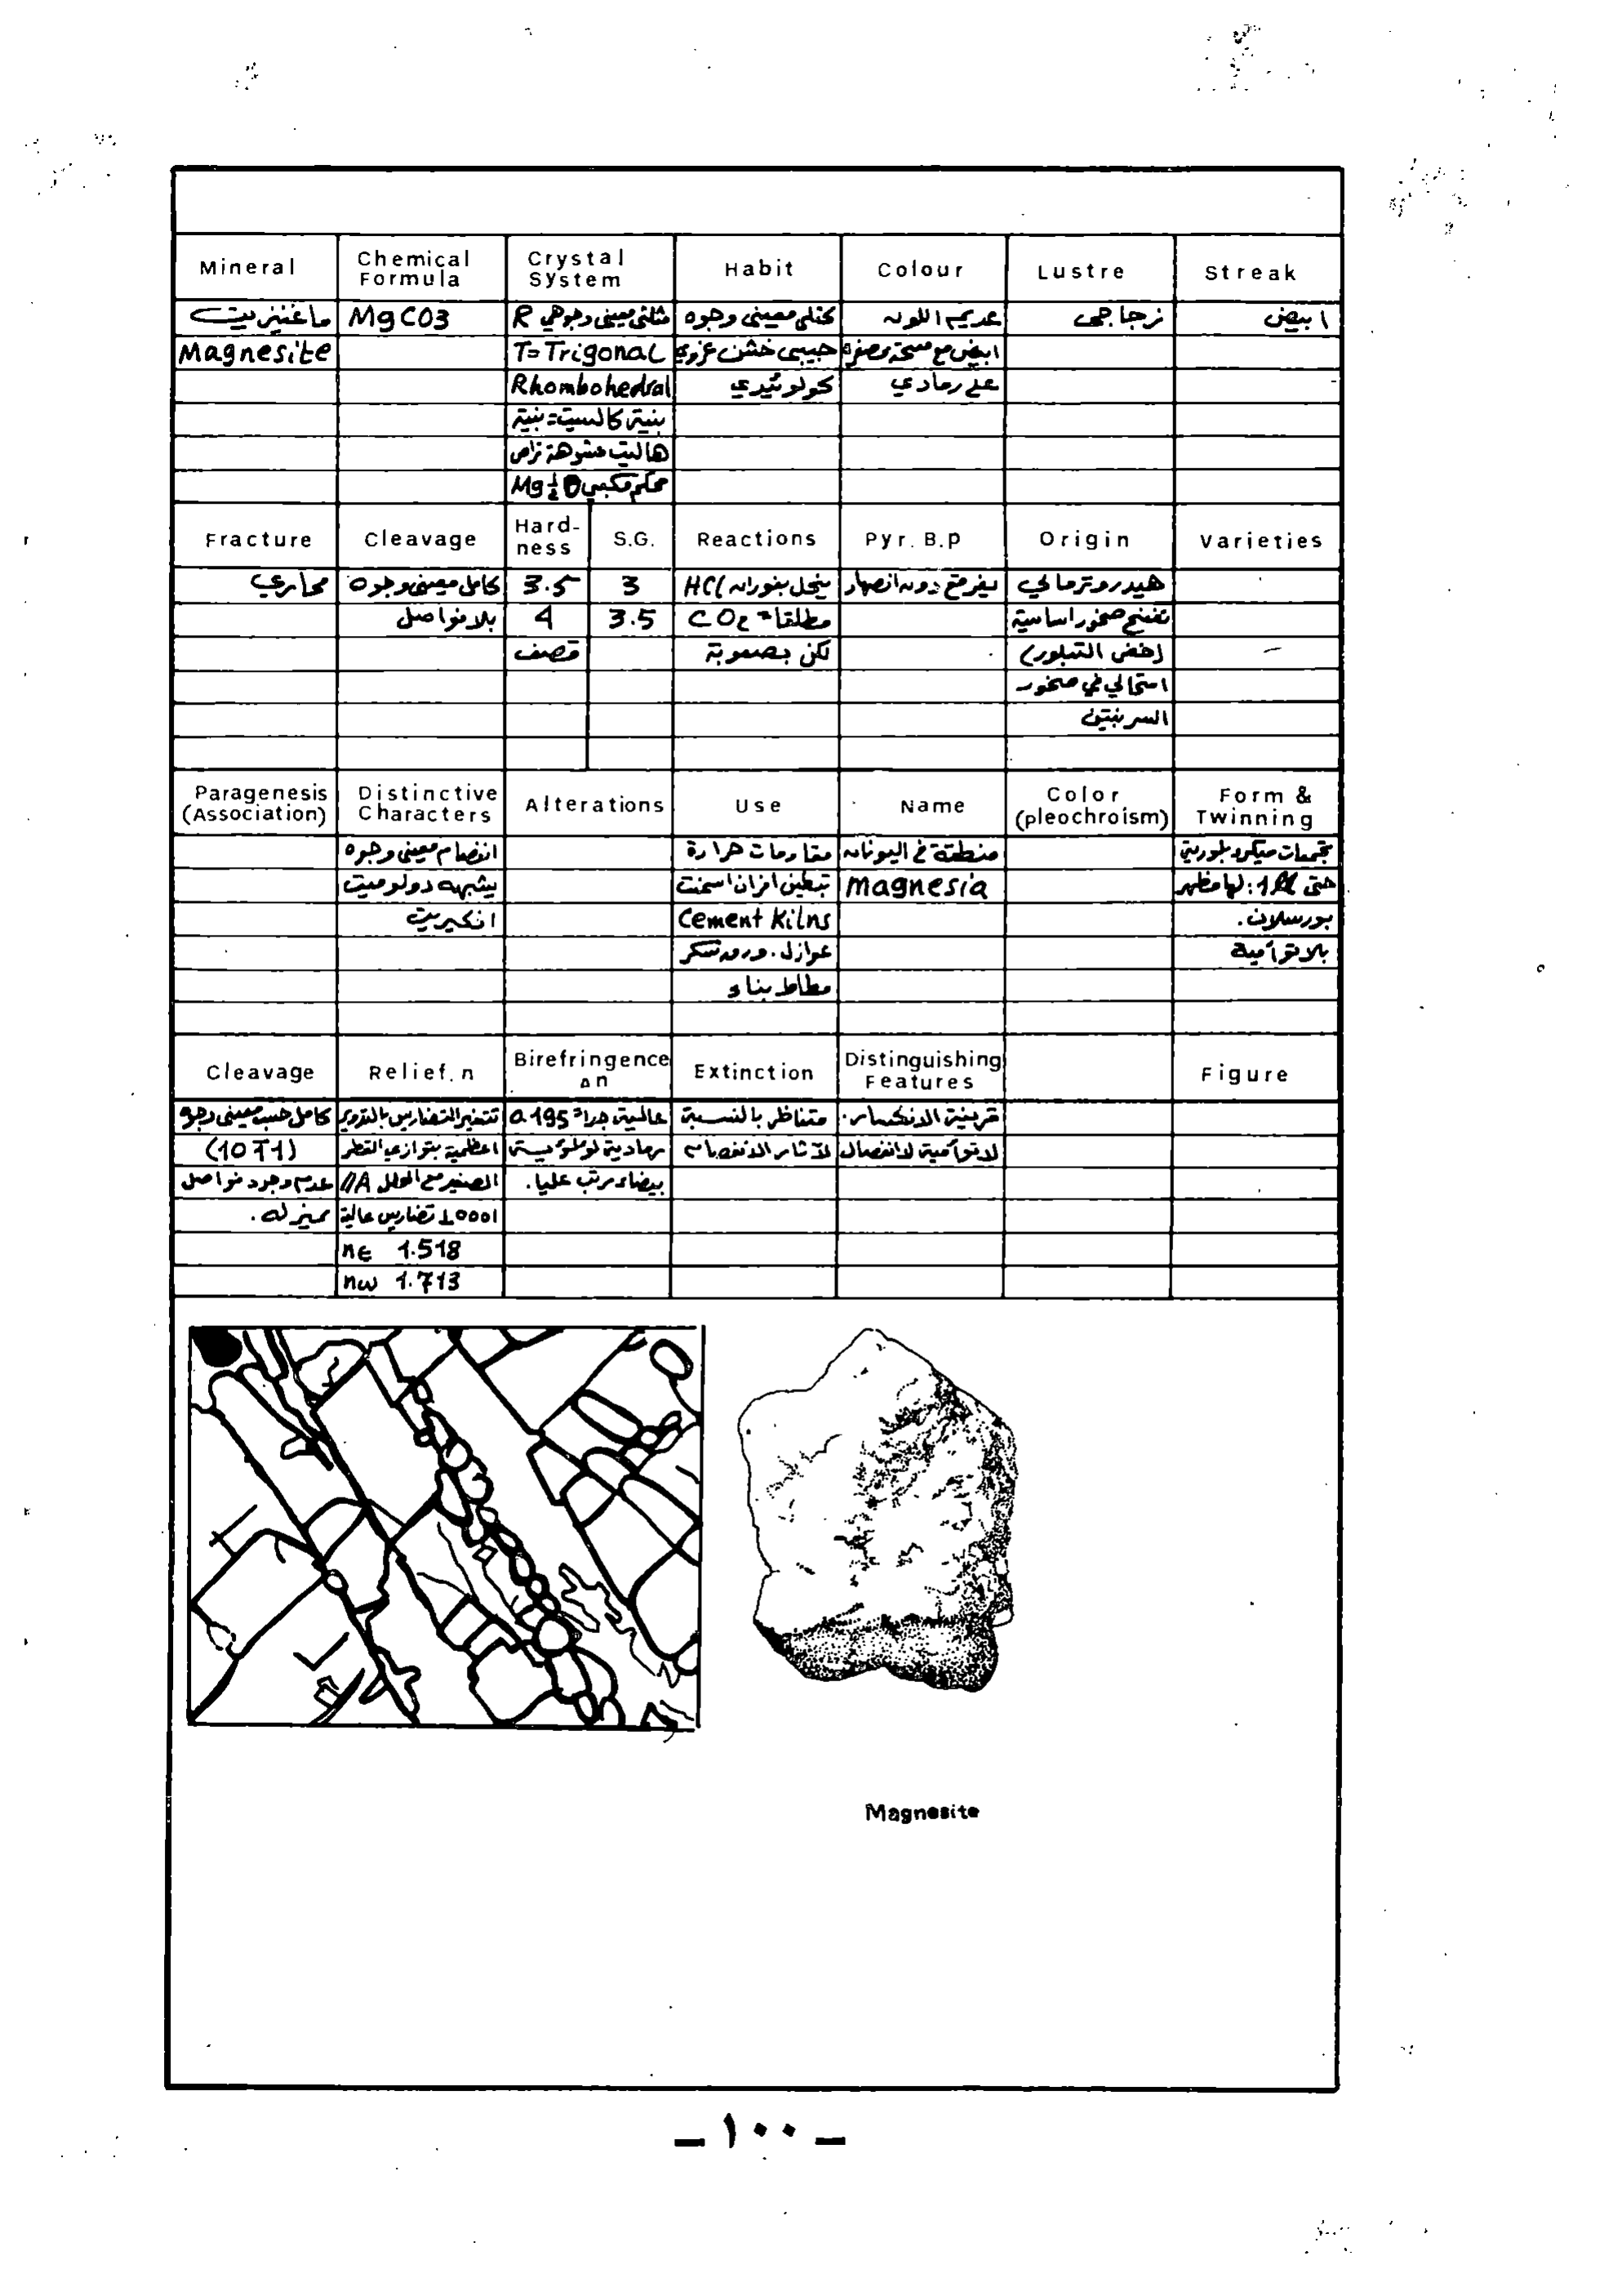 Mineral Chemical Formula Crystal System Habit Colour Lustre Streak
ماغنيزيت MgCO3 مثلثي معيني وجوهي R كتلي معيني وجوه عديم اللون زجاجي ابيض
Magnesite T=Trigonal حبيبي خشن غروي ابيض مع مسحة مصفرة
Rhombohedral كولوئيدي على رمادي
بنية كالسيت = بنية
هاليت مشوهة تراص
محكم مكعبي Mg ½ O
Fracture Cleavage Hard-ness S.G. Reactions Pyr. B.p Origin Varieties
محاري كامل معيني وجوه 3.5 3 ينحل بفوران HCl يفرقع دون انصهار هيدروترمالي
بلا فواصل 4 3.5 مطلقا CO2 صخور اساسية
قصف لكن بصعوبة (خفض التبلور) –
استحالي في صخور
السربنتين
Paragenesis (Association) Distinctive Characters Alterations Use Name Color (pleochroism) Form & Twinning
انفصام معيني وجوه مقاومات حرارة منطقة في اليونان تجمعات ميكروبلورية
يشبه دولوميت تبطين افران اسمنت magnesia حتى : لها مظهر
انكيريت Cement Kilns بورسلان.
عوازل. ورق سكر بلا توأمية
مطاط بناء
Cleavage Relief. n Birefringence Δn Extinction Distinguishing Features Figure
كامل حسب معيني وجو تتغير التضاريس بالتدوير عالية جدا = 0.195 متناظر بالنسبة قرينة الانكسار.
(10T1) اعظمية بتوازي القطر رمادية لؤلؤية لآثار الانفصام لا توأمية لا انفصال
عدم وجود فواصل الصغير مع // A بيضاء مرتب عليا.
مميز له. ⊥0001 تضاريس عالية
nє 1.518
nω 1.713
Magnesite
– ١٠٠ –